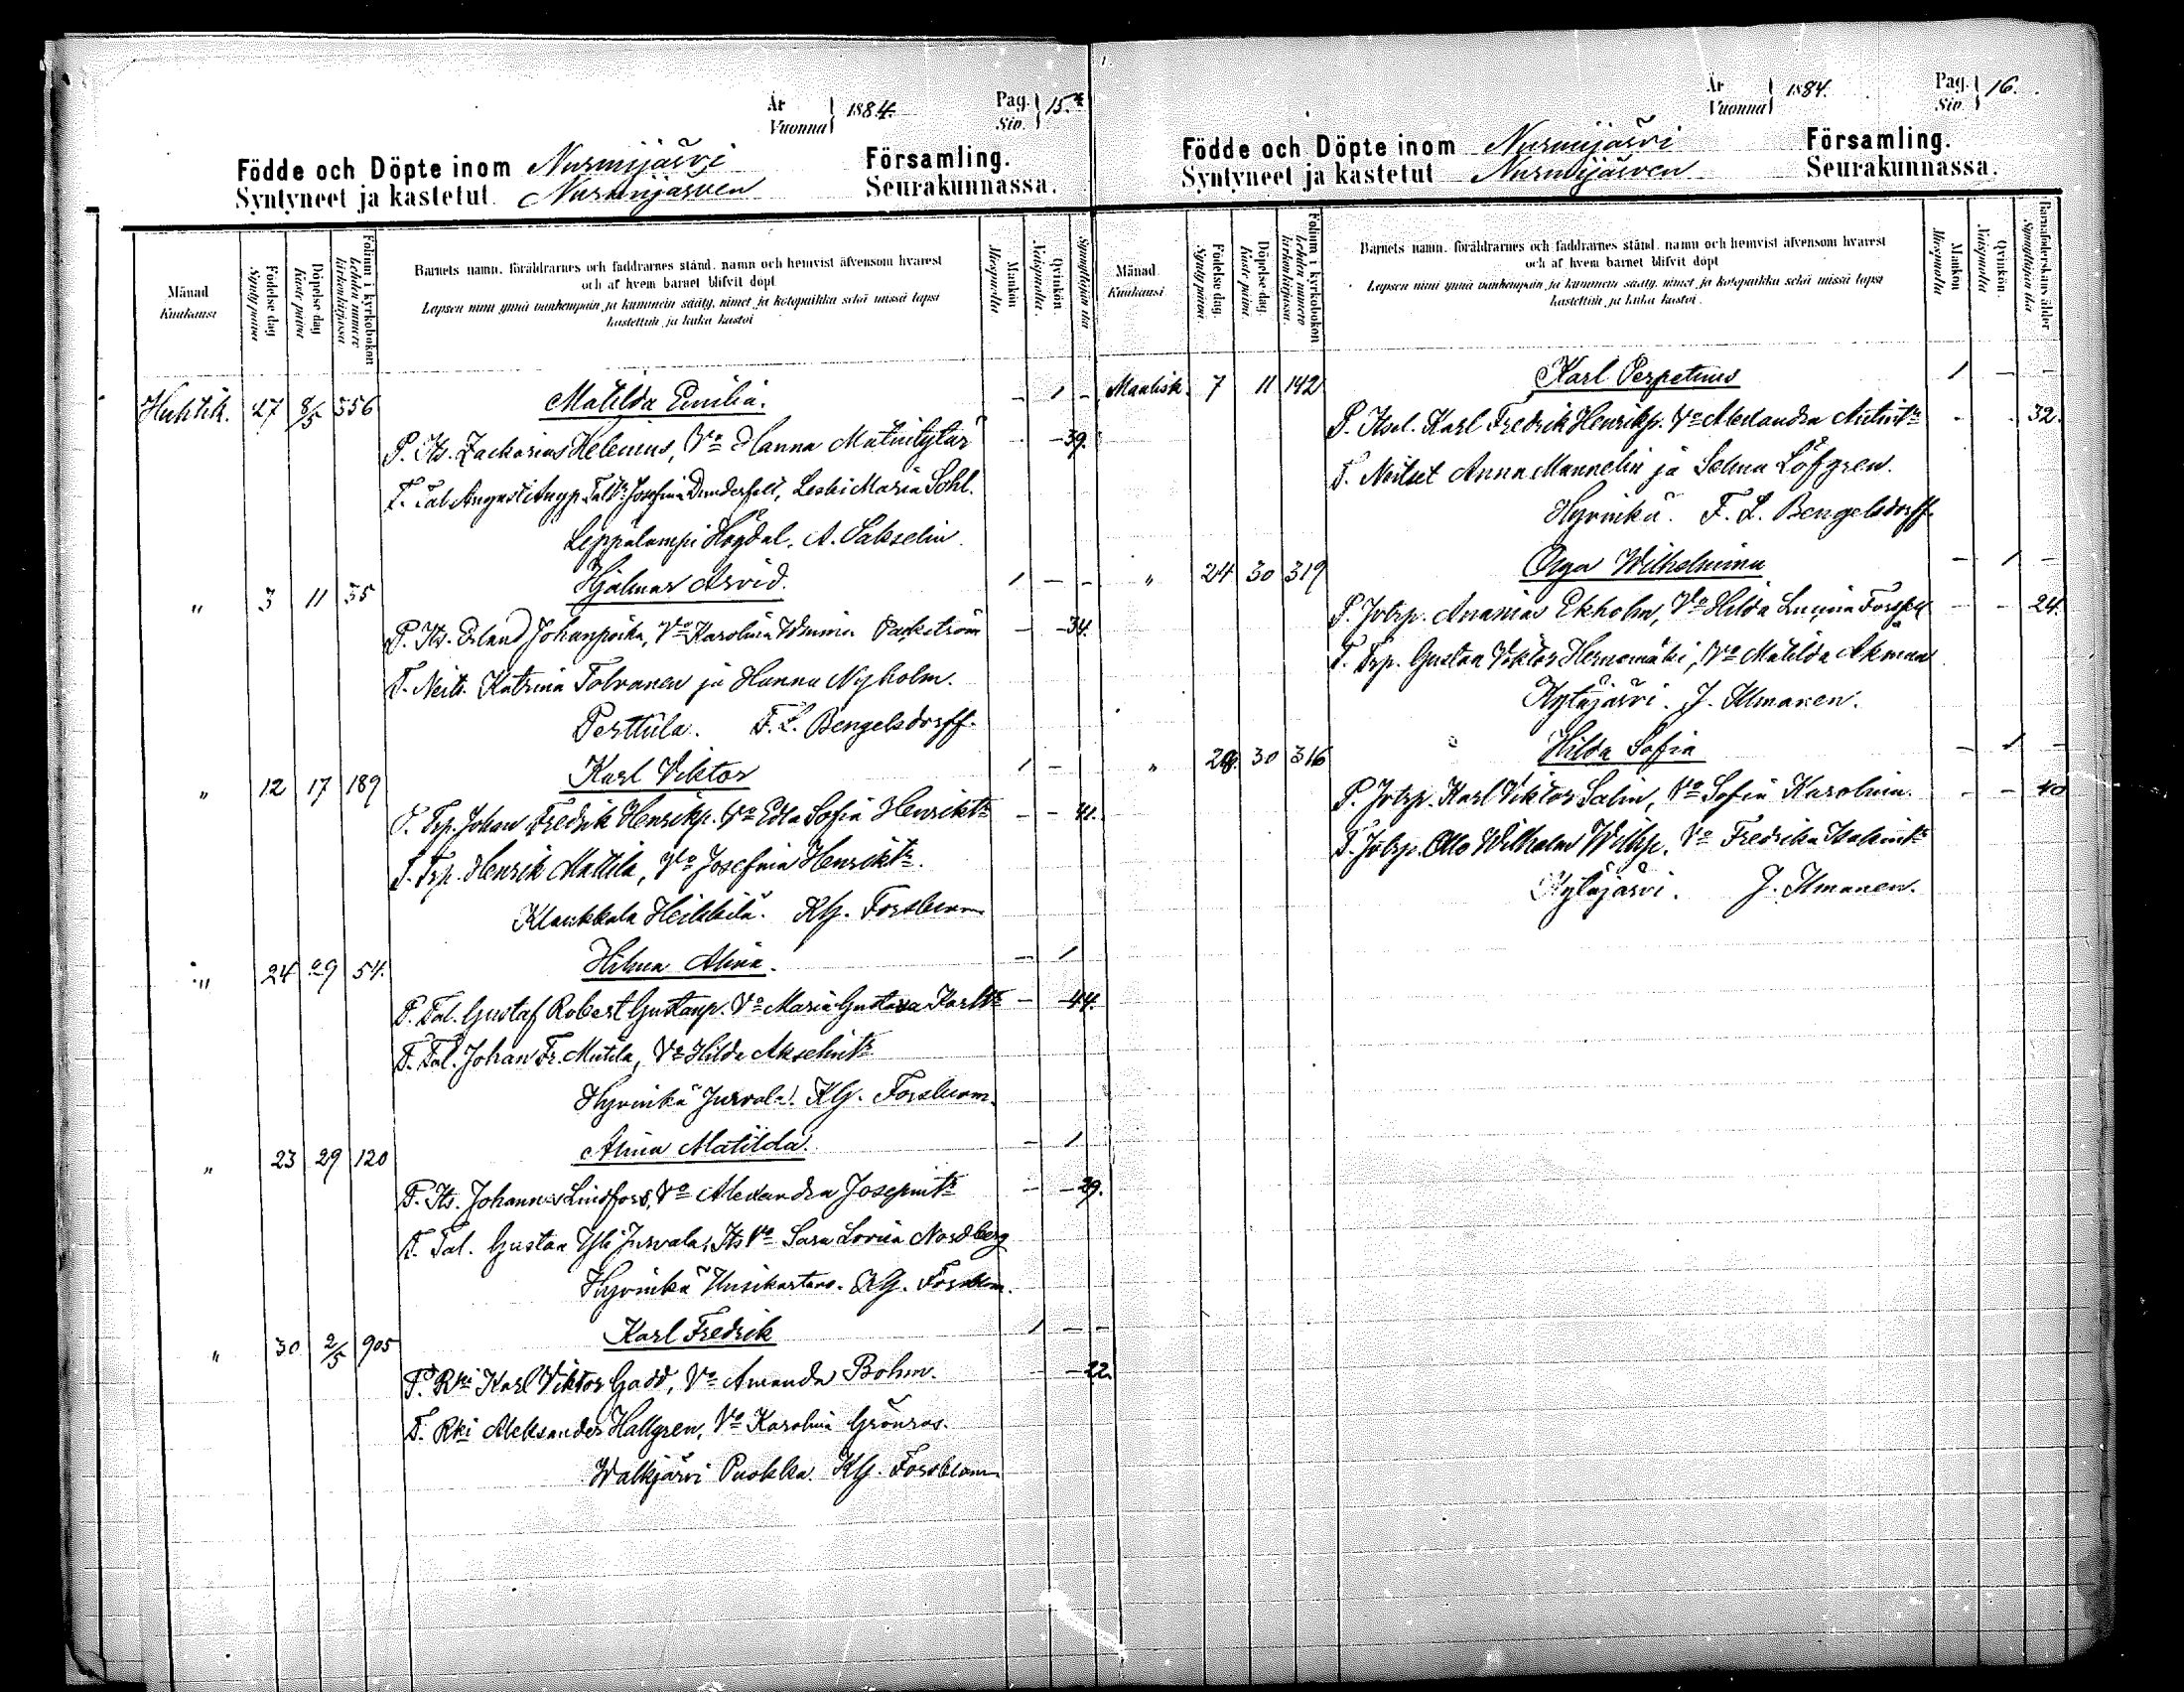 År
Vuonna
1884.
Pag.
Siv.
15.
Födde och Döpte inom Nurmijärvi Församling.
Syntyneet ja kastetut Nurmijärven Seurakunnassa.
Månad
Kuukausi
Födelse dag
Synty päivä
Döpelse dag
Kaste päivä
Folium i kyrkoboken
Lehden numero kirkonkirjassa
Barnets namn, föräldrarnes och faddrarnes stånd, namn och hemvist äfvensom hvarest
och af hvem barnet blifvit döpt
Lapsen nimi ynnä vanhempain ja kummein sääty, nimet ja kotopaikka sekä missä lapsi
kastettiin ja kuka kastoi
Mankön
Miespuolta
Qvinkön
Naispuolta
Synnyttäjän ikä
Huhtik. 27 8/5 356 Matilda Emilia. - 1 -
P. Its. Zackarias Helenius, Vo Hanna Matintytär - 39.
T. Tal. August Augp. Taltr. Josefina Dunderfelt, Leski Maria Sohl.
Leppälampi Högdal. A. Sakselin
" 3 11 35 Hjalmar Arvid. 1 - -
P. Its. Erland Johanpoika, Vo Karolina Wmina Packström - 34.
T. Neits. Katrina Tolvanen ja Hanna Nyholm.
Perttula. F. L. Bengelsdorff
" 12 17 189 Karl Viktor 1 -
P. Trp. Johan Fredrik Henrikp. Vo Edla Sofia Henriktr - - 41.
T. Trp. Henrik Mattila, Vo Josefina Henriktr.
Klaukkala Heikkilä. KG. Forsblom
" 24 29 54. Hilma Alina. - 1
P. Tal. Gustaf Robert Gustavp. Vo Maria Gustava Karltr - - 44.
T. Tal. Johan Fr. Mutila, Vo Hilda Akselintr
Hyvinkä Jurvala. KG. Forsblom.
" 23 29 120 Alina Matilda. - 1
P. Its. Johannes Lindfors, Vo Alexandra Josepintr - - 39.
T. Tal. Gustaa Yli Jurvala, Its Vo Sara Lovisa Nordberg
Hyvinkä Uusikartano. KG. Forsblom.
" 30 2/5 905 Karl Fredrik 1 - -
P. Rki Karl Viktor Gadd, Vo Amanda Bohm. - 22.
T. Rki Aleksander Hallgren, Vo Karolina Grönroos.
Walkjärvi Puokka. KG. Forsblom
År
Vuonna
1884.
Pag.
Siv.
16.
Födde och Döpte inom Nurmijärvi Församling.
Syntyneet ja kastetut Nurmijärven Seurakunnassa.
Månad
Kuukausi
Födelse dag.
Synty päivä
Döpelse dag.
Kaste päivä
Folium i kyrkoboken
Lehden numero kirkonkirjassa.
Barnets namn, föräldrarnes och faddrarnes stånd, namn och hemvist äfvensom hvarest
och af hvem barnet blifvit döpt
Lapsen nimi ynnä vanhempain ja kummein sääty, nimet ja kotopaikka sekä missä lapsi
kastettiin ja kuka kastoi.
Mankön
Miespuolta
Qvinkön.
Naispuolta
Barnaföderskans ålder
Synnyttäjän ikä
Maalisk. 7 11 142 Karl Perpetuus 1 - -
P. Itsel. Karl Fredrik Henrikp. Vo Alexandra Antintr - - 32.
T. Neitset Anna Mannelin ja Selma Löfgren.
Hyvinkä. F. L. Bengelsdorff.
" 24 30 319 Olga Wilhelmina - 1 -
P. Jotrp. Ananias Ekholm, Vo Hilda Lucina Forsell - - 24.
T. Trp. Gustaa Viktor Hernemäki, Vo Matilda Akman
Kytäjärvi. J. Ilmanen.
" 30 316 Hilda Sofia - 1 -
P. Jotrp. Karl Viktor Salin, Vo Sofia Karolina. - - 40
T. Jotrp. Otto Wilhelm Willp. Vo Fredrika Isakintr
Kytäjärvi. J. Ilmanen.